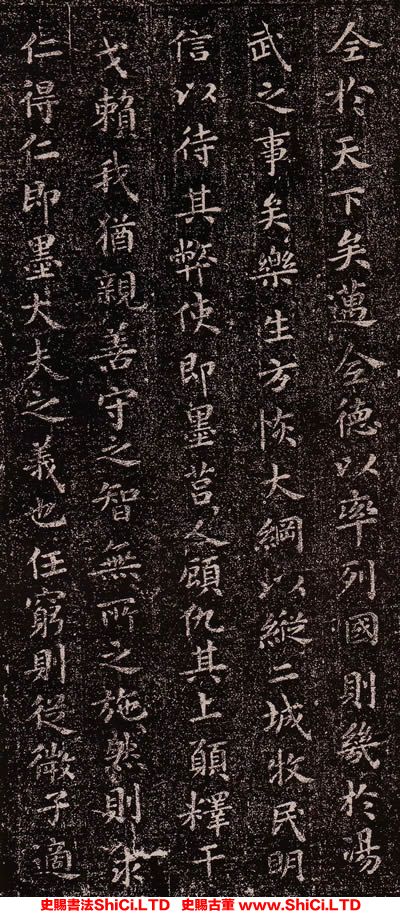 全於天下矣邁全德以率列國則幾於湯
武之事矣樂生方恢大綱以縱二城牧民明
信以待其弊使即墨莒人顧仇其上願釋干
戈賴我猶親善守之智無所之施然則求
仁得仁即墨大夫之義也任窮則從微子適
史賜書法ShiCi.LTD 史賜古董 www.ShiCi.LTD